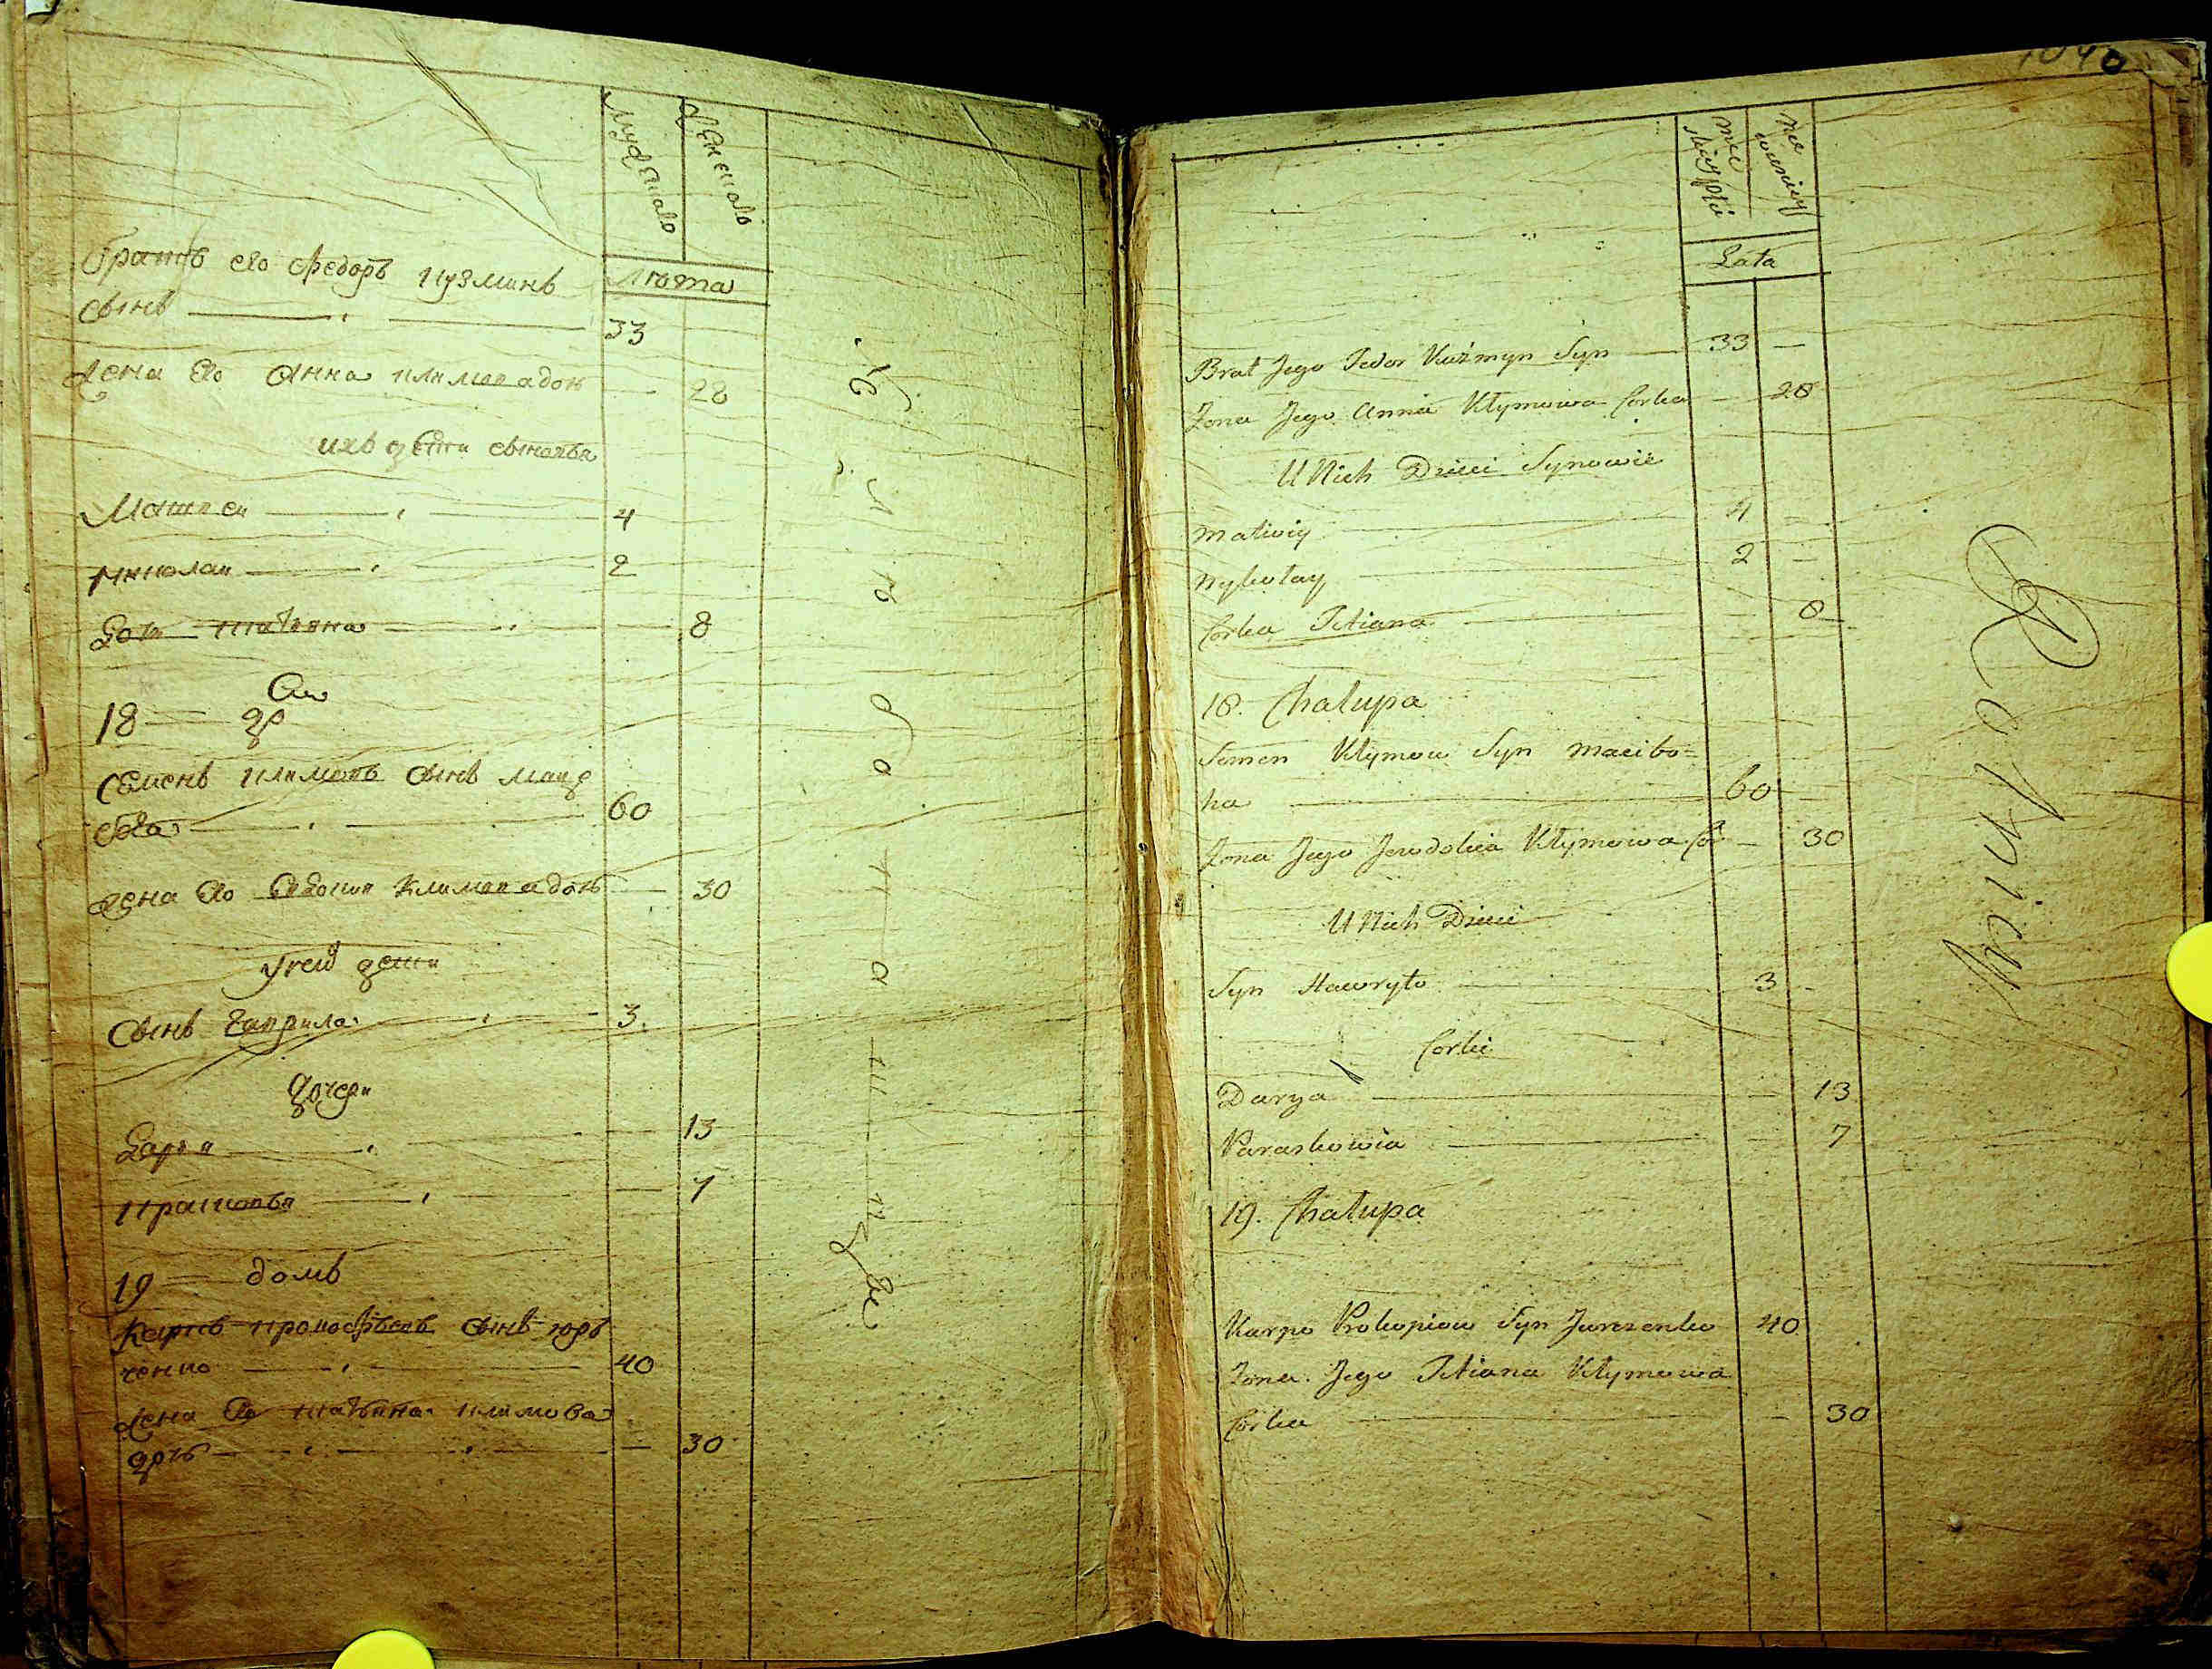 Мужеска
Женска
Лѣта
братъ его Федоръ кузминъ
сынъ 33
жена его Анна климова дочь 28
ихъ дѣти сыновья
Матвей 4
Николай 2
дочь татьяна 8
18 дво
Семенъ климовъ сынъ маце
боха 60
жена его Евдокия климова дочь 30
у них дети
сынъ гаврила 3
дочери
дарья 13
прасковья 7
19 домъ
карпъ прокофьевъ сынъ юр
ченко 40
жена его татьяна климова
дочь 30
1040
Męszczyzn
Lata
Brat Jego Fedor Kuźmyn Syn 33 —
Zona Jego Anna Kłymowa Corka — 28
U Nich Dzieci Synowie
Matwiy 4 —
Nykołay 2 —
Corka Tetiana — 8
18. Chałupa
Semen Kłymow Syn Macibo=
ha 60 —
Zona Jego Jewdokia Kłymowa Cor — 30
U Nich Dzieci
Syn Hawryło 3 -
Corki
Darya — 13
Paraskowia — 7
19. Chałupa
Karpo Prokopiow Syn Jurczenko 40
Zona Jego Tetiana Kłymowa
Corka — 30
Rotnicy